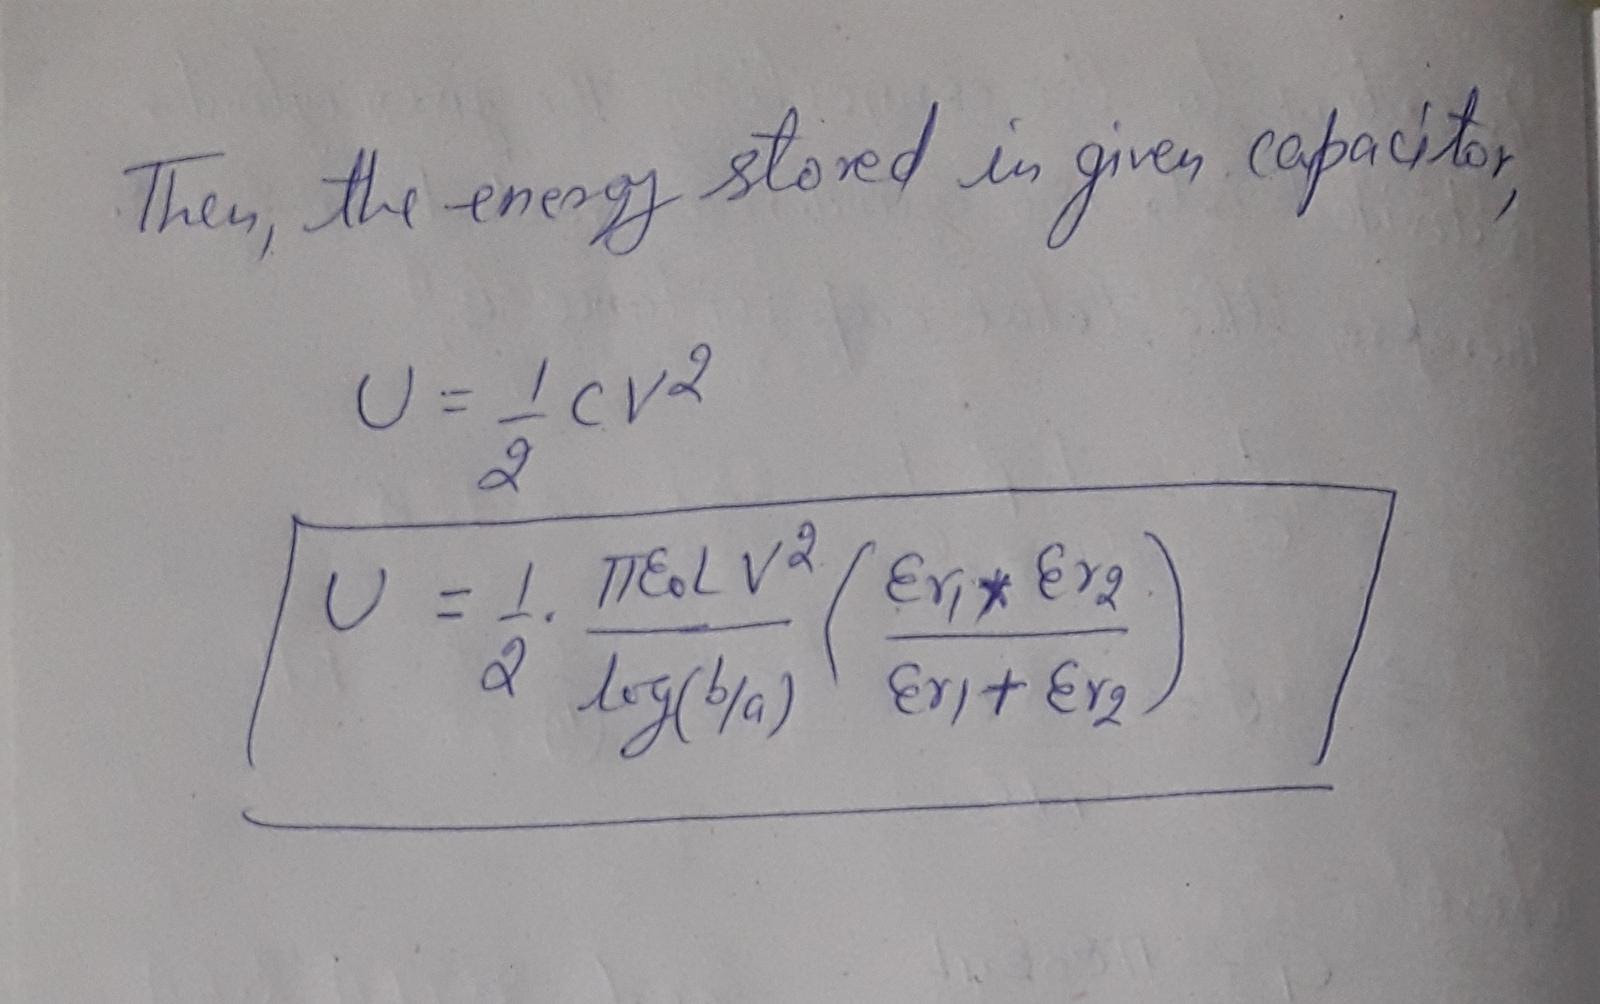 Then, the energy stored in given capacitor,
U = 1/2 CV²
U = 1/2 . πε₀LV²/log(b/a) (εr₁ * εr₂ / εr₁ + εr₂)